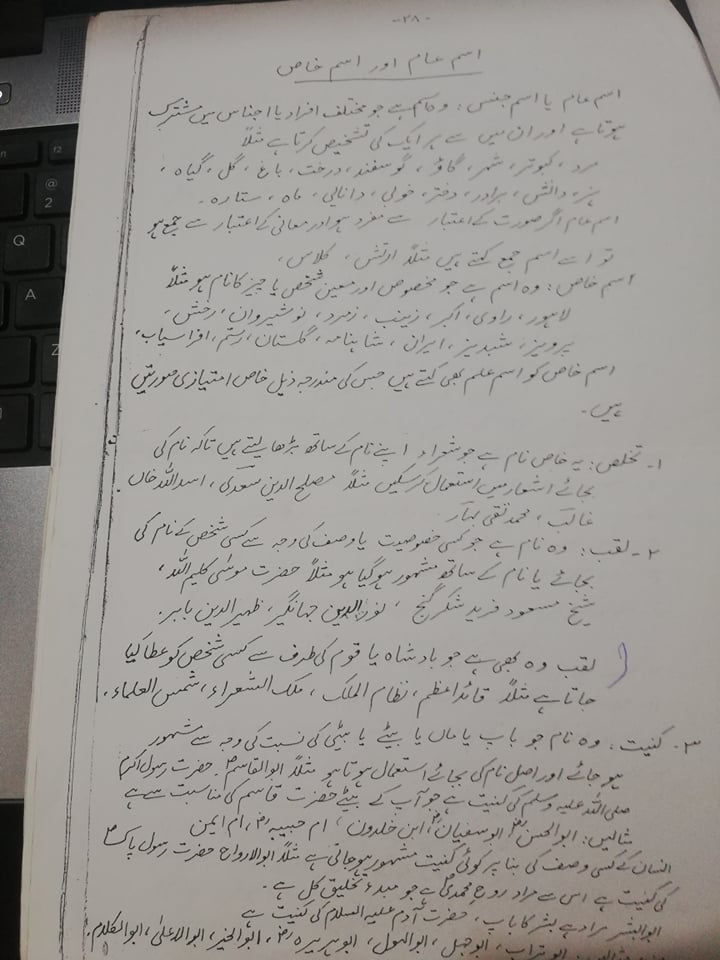 -۲۸-
اسم عام اور اسم خاص
اسم عام یا اسم جنس : وہ اسم ہے جو مختلف افراد یا اجناس میں مشترک
ہوتا ہے اور ان میں سے ہر ایک کی تشخیص کرتا ہے مثلاً
مرد، کبوتر، شہر، گاؤ، گوسفند، درخت، باغ، گل، گیاہ،
ہنر، دانش، برادر، دختر، خوبی، دانائی، ماہ، ستارہ۔
اسم عام اگر صورت کے اعتبار سے مفرد ہو اور معانی کے اعتبار سے جمع ہو
تو اسے اسم جمع کہتے ہیں مثلاً ارتش، کلاس،
اسم خاص : وہ اسم ہے جو مخصوص اور معین شخص یا چیز کا نام ہو مثلاً
لاہور، راوی، اکبر، زینب، زمرد، نوشیروان، رخش،
پرویز، شبدیز، ایران، شاہنامہ، گلستان، رستم، افراسیاب،
اسم خاص کو اسم علم بھی کہتے ہیں جس کی مندرجہ ذیل خاص امتیازی صورتیں
ہیں۔
۱۔ تخلص : یہ خاص نام ہے جو شعراء اپنے نام کے ساتھ بڑھا لیتے ہیں تاکہ نام کی
بجائے اشعار میں استعمال کر سکیں مثلاً مصلح الدین سعدی، اسد اللہ خاں
غالب، محمد تقی بہار
۲۔ لقب : وہ نام ہے جو کسی خصوصیت یا وصف کی وجہ سے کسی شخص کے نام کی
بجائے یا نام کے ساتھ مشہور ہو گیا ہو مثلاً حضرت موسٰی کلیم اللہ،
شیخ مسعود فرید شکر گنج، نور الدین جہانگیر، ظہیر الدین بابر۔
لقب وہ بھی ہے جو بادشاہ یا قوم کی طرف سے کسی شخص کو عطا کیا
جاتا ہے مثلاً قائد اعظم، نظام الملک، ملک الشعراء، شمس العلماء۔
۳۔ کنیت : وہ نام جو باپ یا ماں یا بیٹے یا بیٹی کی نسبت کی وجہ سے مشہور
ہو جائے اور اصل نام کی بجائے استعمال ہوتا ہو مثلاً ابو القاسم حضرت رسول اکرم
صلی اللہ علیہ وسلم کی کنیت ہے جو آپ کے بیٹے حضرت قاسم کی مناسبت سے ہے
مثالیں : ابو الحسن، ابو سفیان، ابن خلدون، ام حبیبہ، ام ایمن
انسان کے کسی وصف کی بنا پر کوئی کنیت مشہور ہو جاتی ہے مثلاً ابو الارواح حضرت رسول پاک
کی کنیت ہے اس سے مراد روح محمدی ہے جو مبدء تخلیق کل ہے۔
ابو البشر مراد ہے بشر کا باپ، حضرت آدم علیہ السلام کی کنیت ہے
ابو تراب، ابو جہل، ابو الہول، ابو ہریرہ، ابو الخیر، ابو الاعلیٰ، ابو الکلام۔